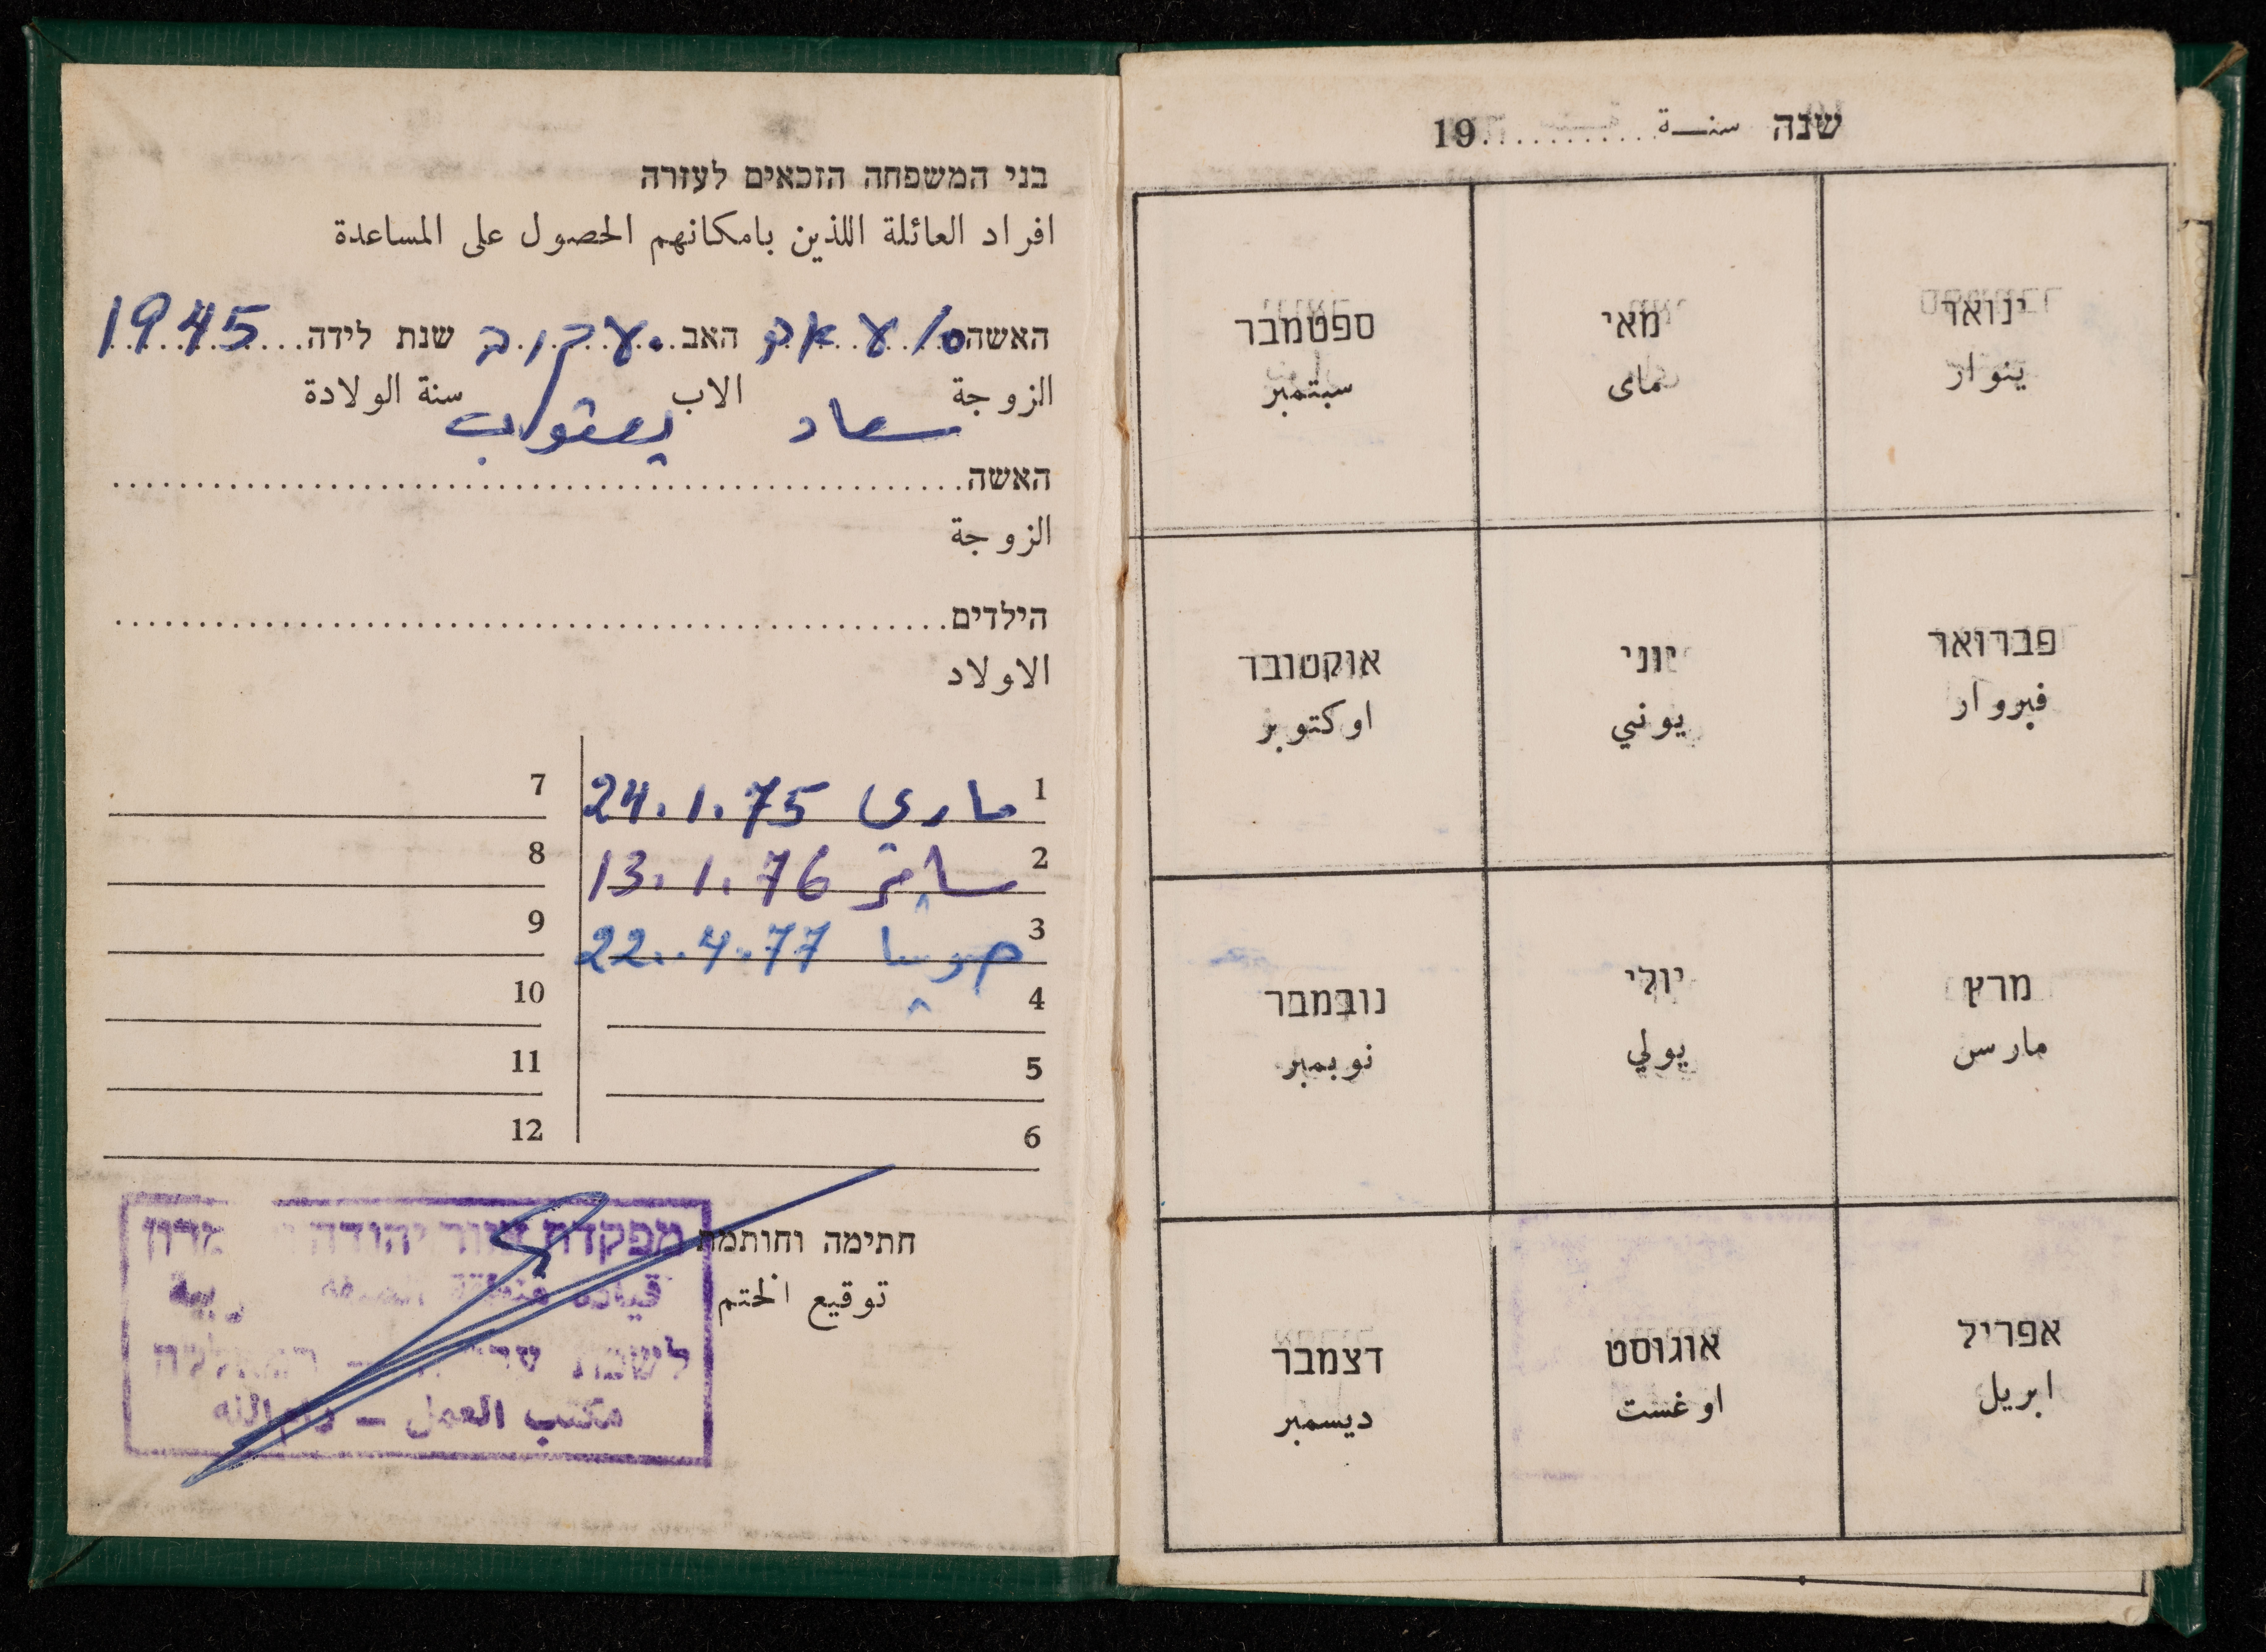 בני המשפחה הזכאים לעזרה
افراد العائلة اللذين بامكانهم الحصول على المساعدة
האשה האב יעקוב שנת לידה 1945
الزوجة الاب سنة الولادة
سعاد يعقوب
האשה
الزوجة
הילדים
الاولاد
1 ماري 24.1.75
2 13.1.76
3 22.4.77
4
5
6
7
8
9
10
11
12
חתימה וחותמת
توقيع الختم
מפקדת אזור יהודה
قيادة منطقة
לשכת
مكتب العمل – رام الله
שנה سنة 19
ינואר
ينوار
מאי
ماى
ספטמבר
سبتمبر
פברואר
فبروار
יוני
يونيي
אוקטובר
اوكتوبر
מרץ
مارس
יולי
يولي
נובמבר
نوبمبر
אפריל
ابريل
אוגוסט
اوغست
דצמבר
ديسمبر